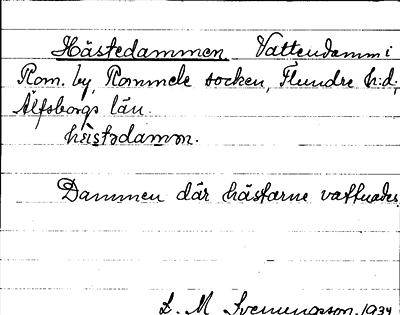 Hästedammen Vattendamm i
Rom. by, Rommele socken, Flundre h:d,
Älfsborgs län.
hèistədamṃ.
Dammen där hästarne vattnades.
S. M. Svenungsson. 1934